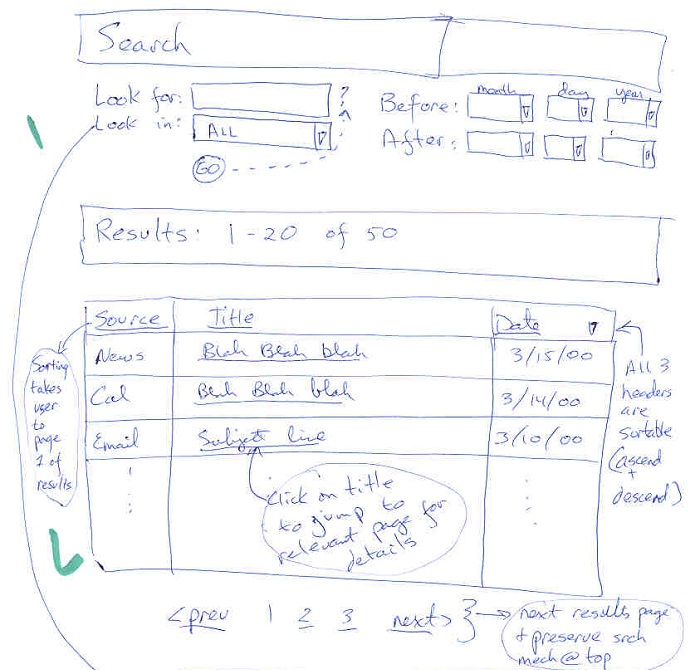 Search
Look for: ?
Look in: ALL
GO
month day year
Before:
After:
Results: 1-20 of 50
Source Title Date
News Blah Blah blah 3/15/00
Cal Blah Blah blah 3/14/00
Email Subject line 3/10/00
Sorting
takes
user
to
page
1 of
results
All 3
headers
are
sortable
(ascend
+
descend)
Click on title
to jump to
relevant page for
details
<prev 1 2 3 next>
next results page
+ preserve srch
mech @ top